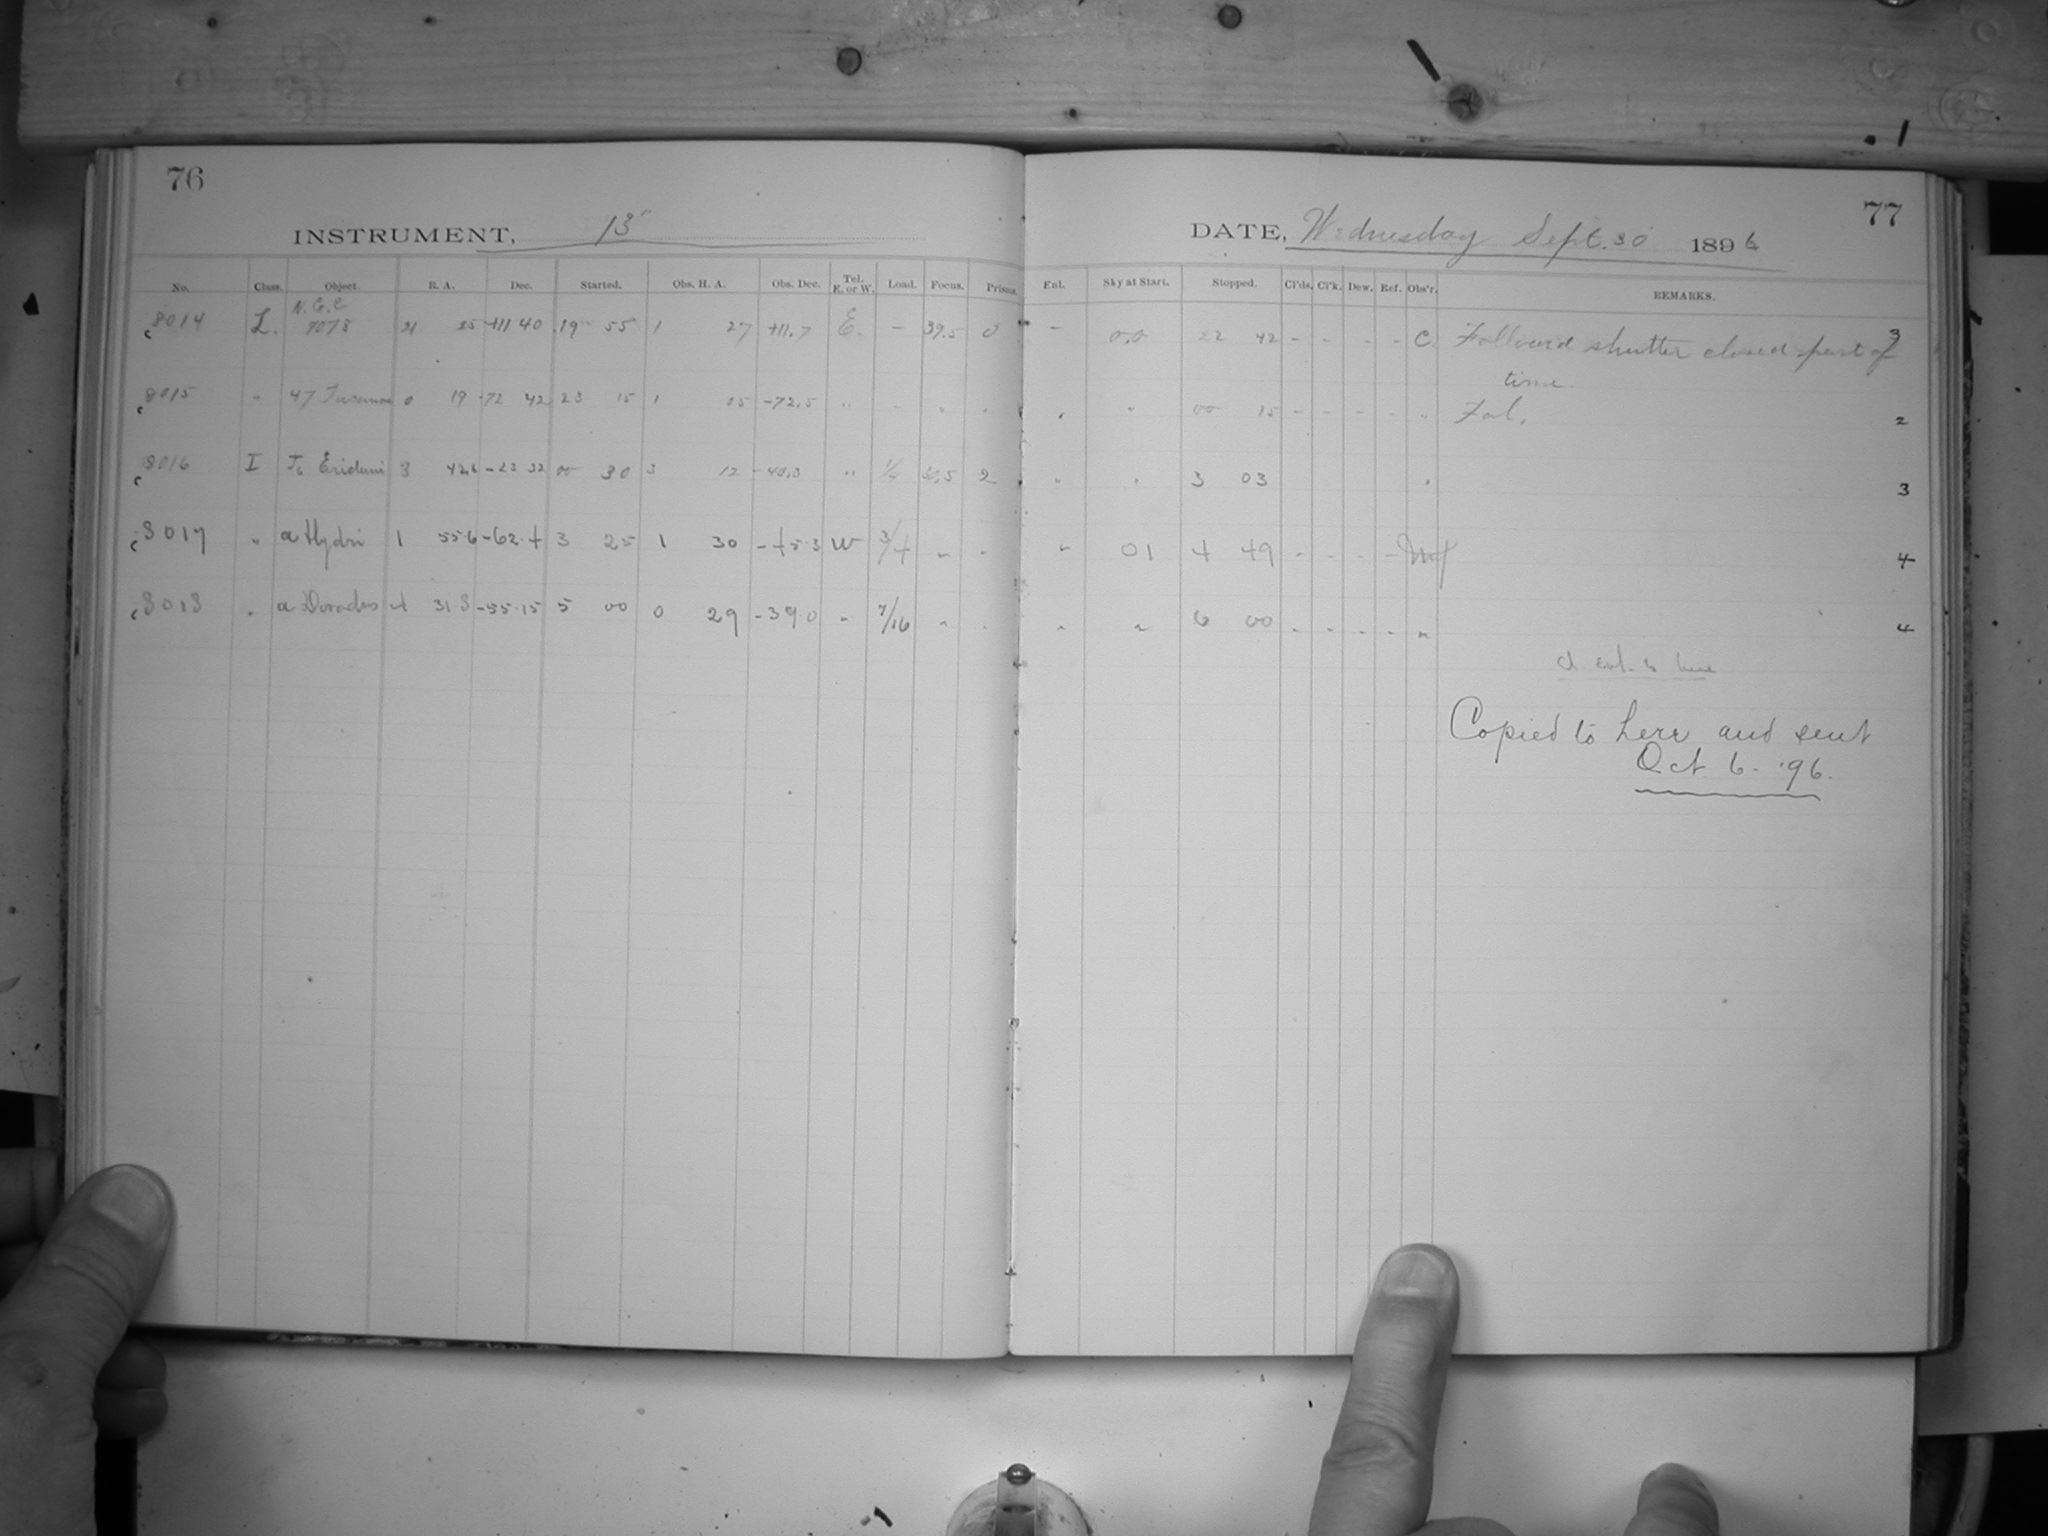 76
INSTRUMENT, 13"
No. Class. Object. R. A. Dec. Started. Obs. H. A. Obs. Dec. Tel. E. or W. Load. Focus. Prisms.
N.G.C
8014 L. 7078 21 25 +11 40 19 55 1 27 +11.7 E. - 39.5 0
8015 " 47 0 19 -72 42 23 15 1 05 -72.5 " - " "
8016 I Eridani 3 42.6 -23 32 00 30 3 12 -40.3 " 1/4 2
8017 " a Hydri 1 55.6 -62.4 3 25 1 30 -45.3 W 3/4 " "
8018 " a Doradus 4 31.8 -55.15 5 00 0 29 -39.0 " 7/16 " "
77
DATE, Wednesday Sept. 30 1896
Ent. Sky at Start. Stopped. Cl'ds. Cl'k. Dew. Ref. Obs'r. REMARKS.
- 0.0 22 42 - - - - C. Followed shutter closed part of 3
time.
" " 00 15 - - - - " Fol. 2
" " 3 03 " 3
" 01 4 49 - - - - 4
" " 6 00 - - - - " 4
Copied to here and sent
Oct 6. '96.